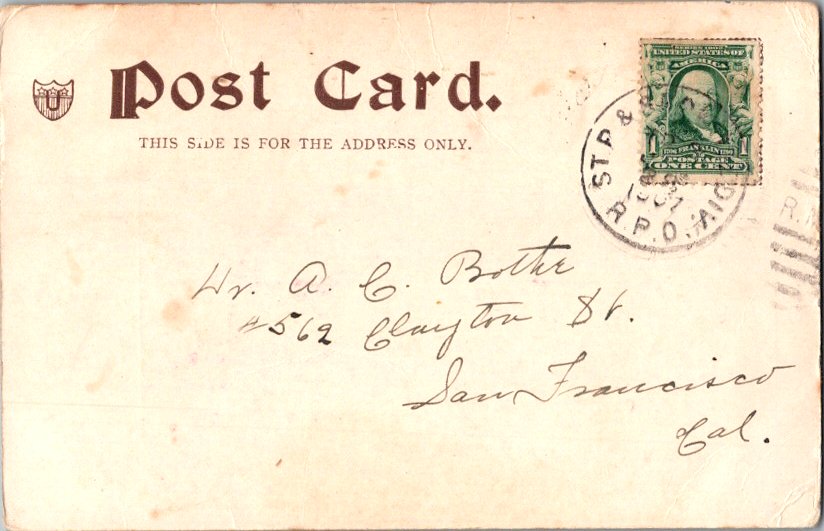 Post Card.
THIS SIDE IS FOR THE ADDRESS ONLY.
U
SERIES 1902
UNITED STATES OF
AMERICA
FRANKLIN
1 POSTAGE 1
ONE CENT
ST. P. &
1907
R.P.O.
R.
A. C. Bothe
4562 Clayton St.
San Francisco
Cal.